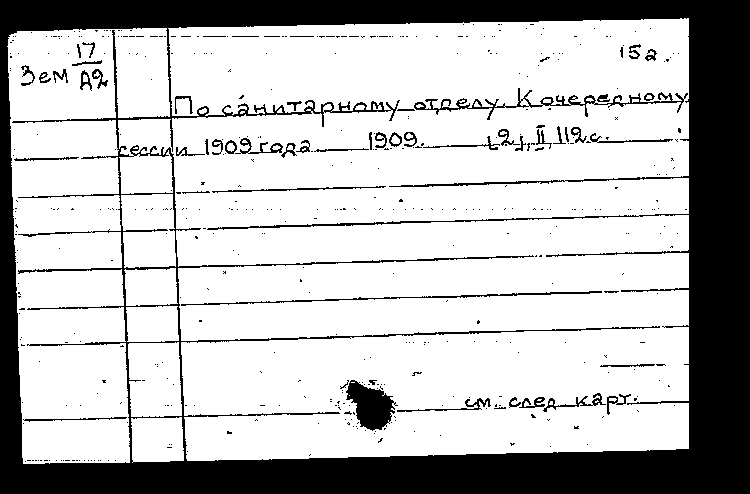 17 15а.
Зем А2
По санитарному отделу. К очередному
сессии 1909 года 1909. [2], II, 112с.
см. след. карт.